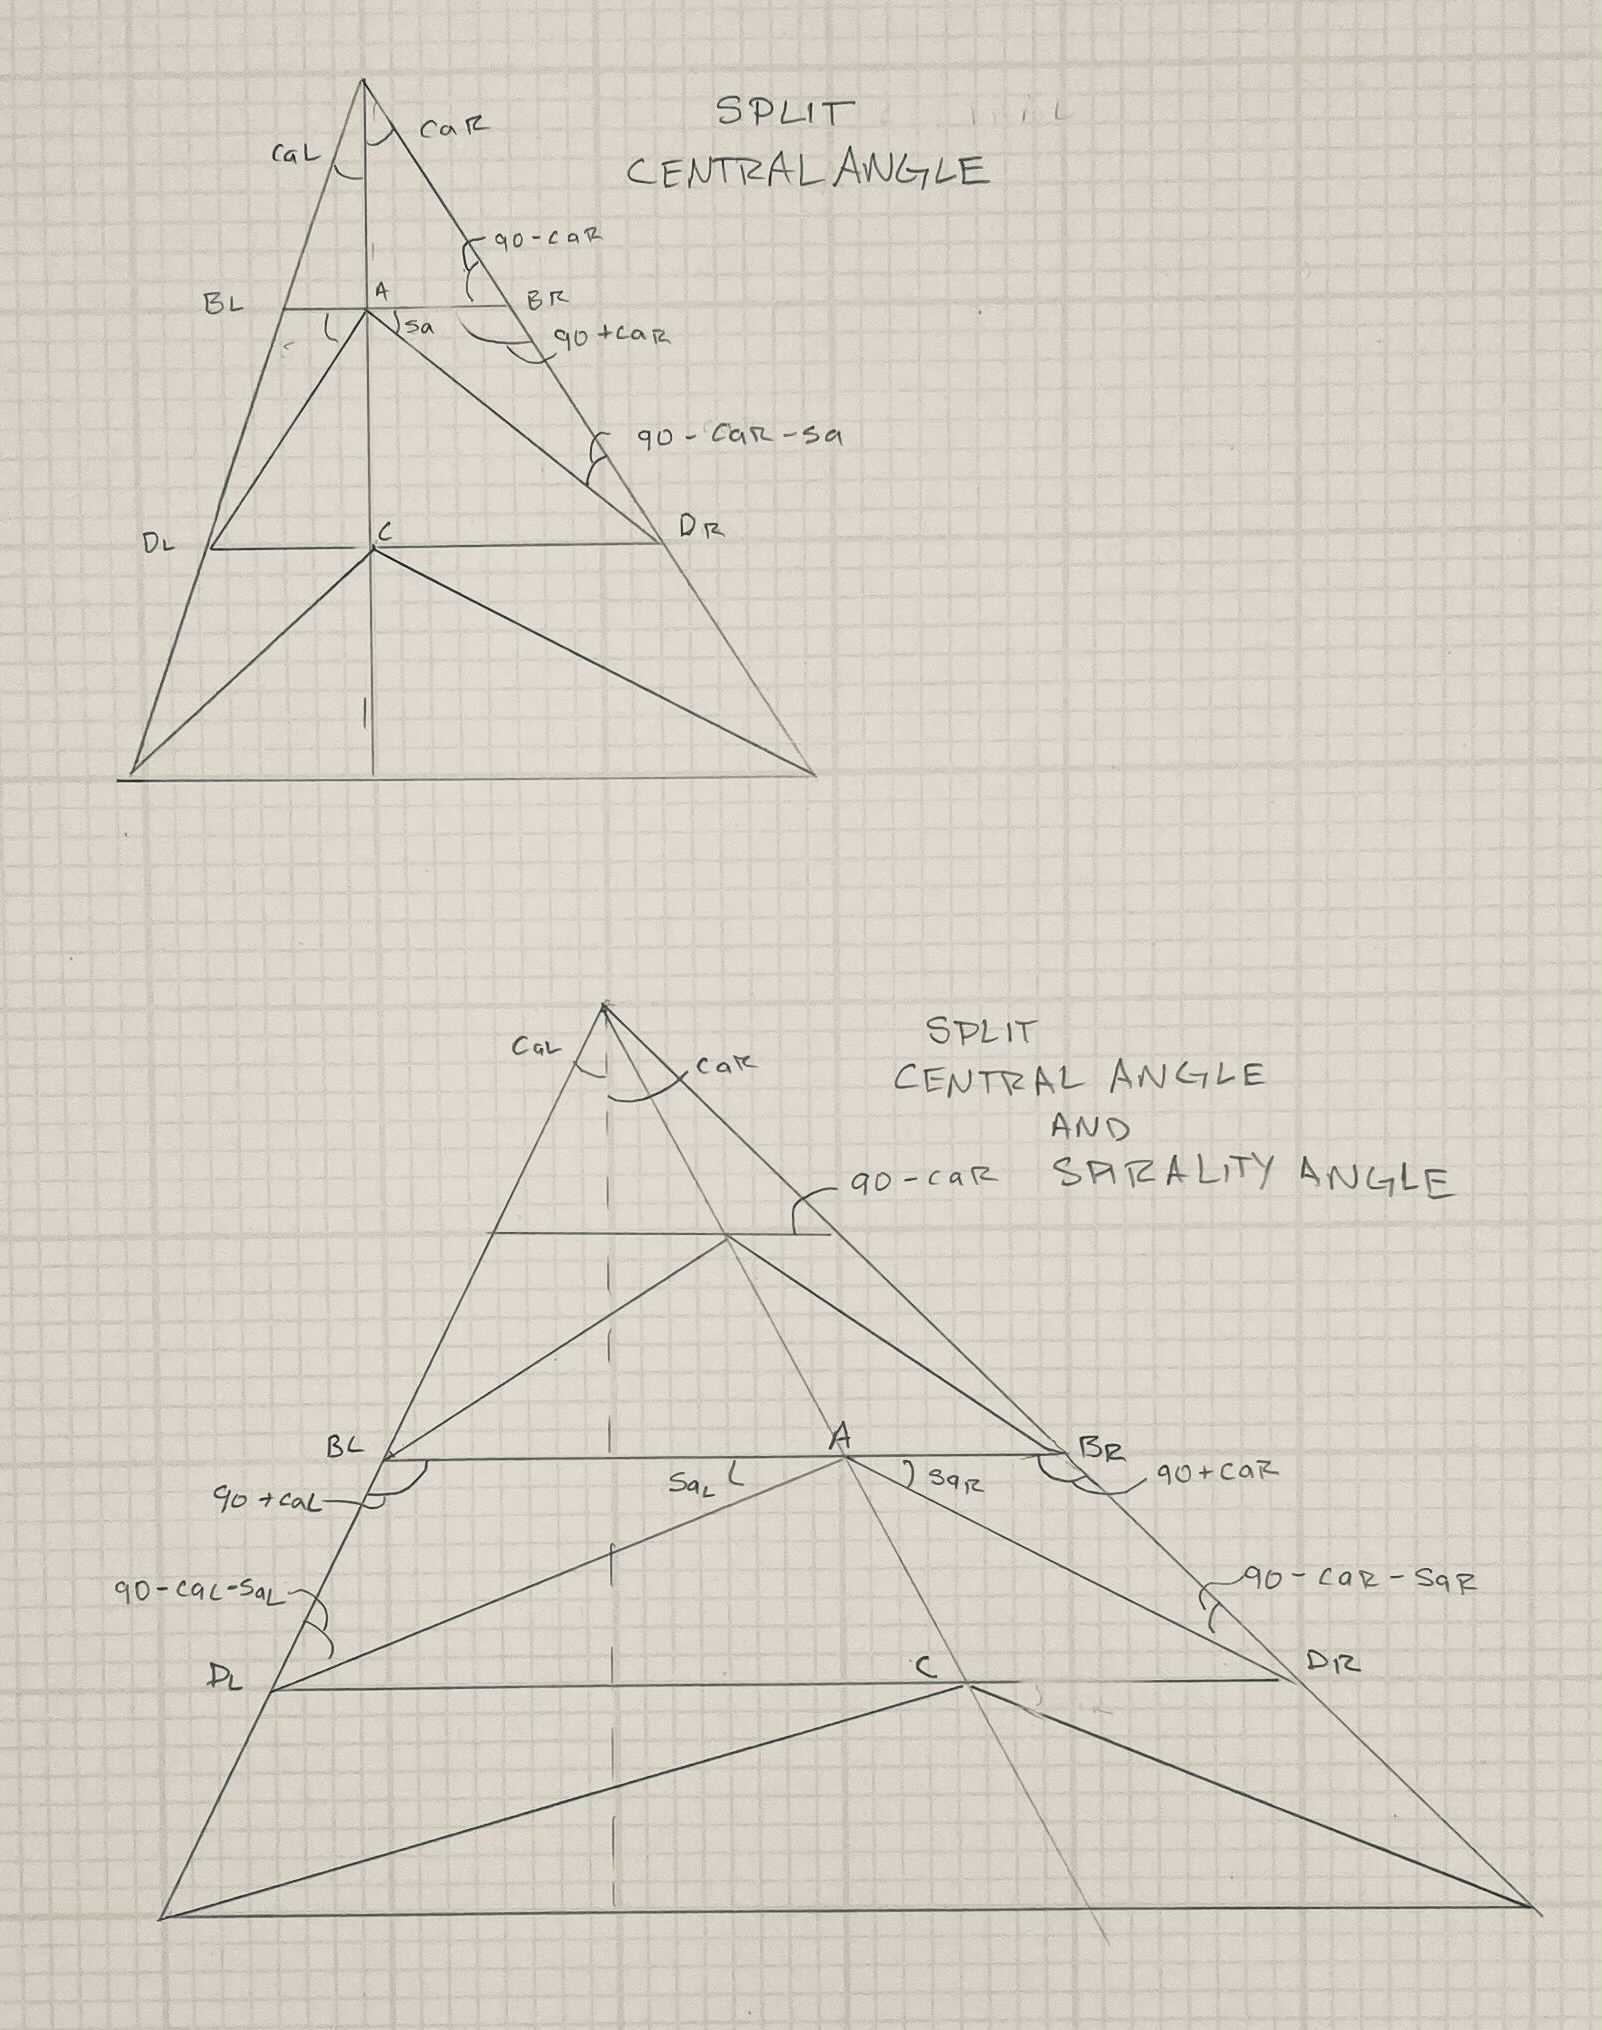 SPLIT
CENTRAL ANGLE
caL
caR
90-caR
BL
A
BR
sa
90+caR
90-caR-sa
DL
C
DR
SPLIT
CENTRAL ANGLE
AND
SPIRALITY ANGLE
caL
caR
90-caR
BL
A
BR
saL
saR
90+caL
90+caR
90-caL-saL
90-caR-saR
DL
C
DR